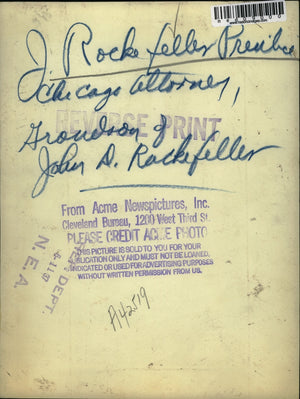 J. Rockefeller Prentice
Chicago attorney,
REVERSE PRINT
Grandson of
John D. Rockefeller
From Acme Newspictures, Inc.
Cleveland Bureau, 1200 West Third St.
PLEASE CREDIT ACME PHOTO
THIS PICTURE IS SOLD TO YOU FOR YOUR
PUBLICATION ONLY AND MUST NOT BE LOANED,
INDICATED OR USED FOR ADVERTISING PURPOSES
WITHOUT WRITTEN PERMISSION FROM US.
DEPT.
N. E. A.
A42519